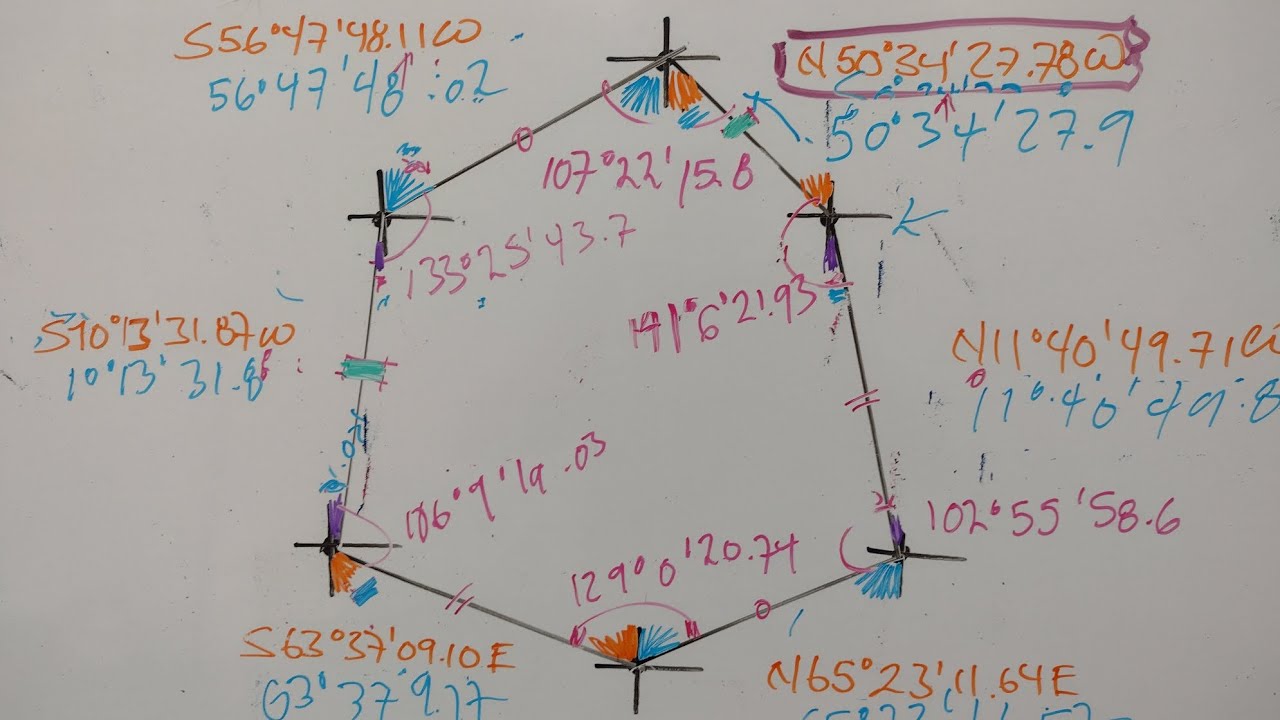 S56°47'48.11W
56°47'48:02
N50°34'27.78W
50°34'27.9
107°22'15.8
133°25'43.7
141°6'21.93
S10°13'31.87W
10°13'31.8
N11°40'49.71W
11°.40'49.8
106°9'19.03
102°55'58.6
129°0'20.74
S63°37'09.10E
63°37'9.17
N65°23'11.64E